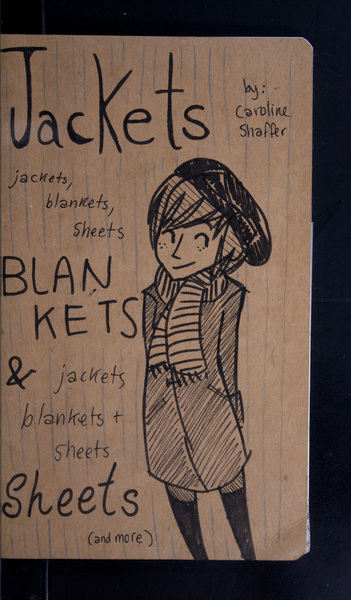 Jackets
by:
Caroline
Shaffer
jackets,
blankets,
Sheets
BLAN
KETS
& jackets
blankets +
sheets
Sheets
(and more)